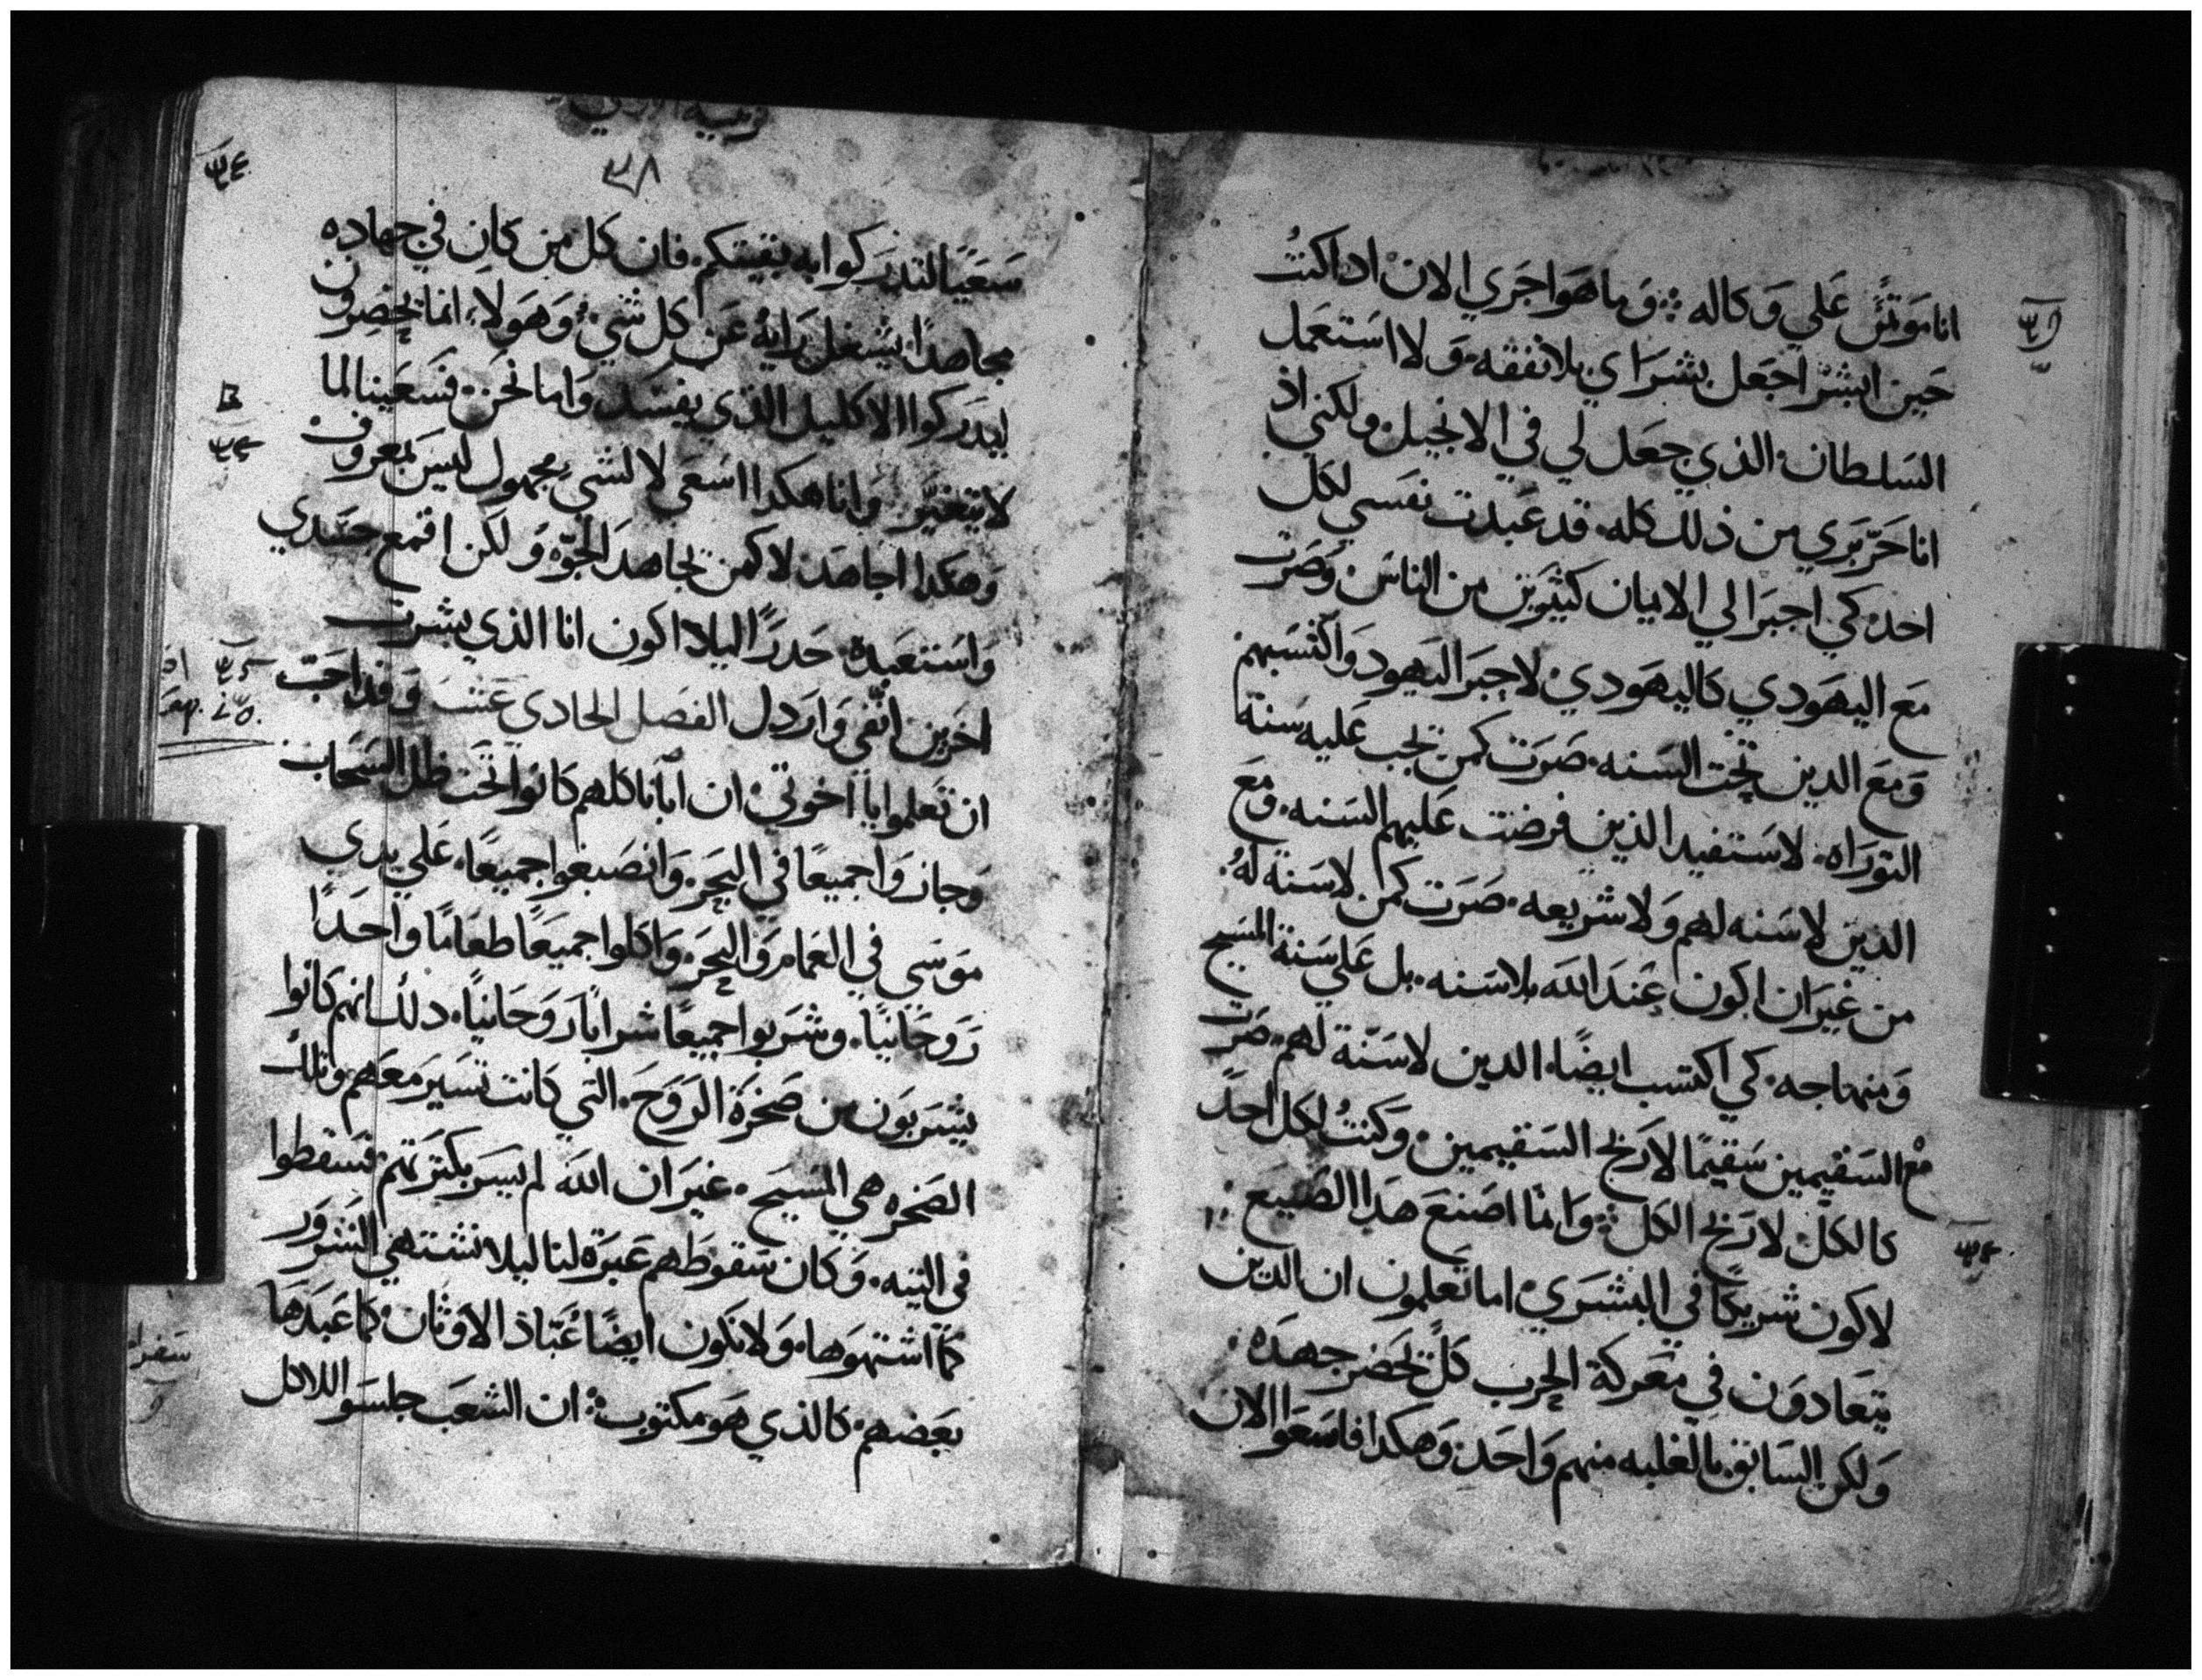 انا موتمن علي وكاله ۞ وما هوا جري الان اداكنتُ
حين ابشر اجعل بشراي بلا نفقه ولا استعمل
السلطان الذي جعل لي في الانجيل ولكني اذ
انا حرّ بري من ذلك كله قد عبدت نفسي لكل
احد كي اجبر الي الايمان كثيرين من الناس وصرت
مع اليهودي كاليهودي لاجبر اليهود واكتسبهم
ومع الدين تحت السنه صرت كمن تجب عليه سنة
التوراه لاستفيد الذين فرضت عليهم السنه ومع
الدين لاسنه لهم ولا شريعه صرت كمن لاسنة لهُ
من غير ان اكون عند الله بلاسنه بل علي سنة المسيح
ومنهاجه كي اكتسب ايضًا الدين لاسنّة لهم صرت
مع السقيمين سقيمًا لاربح السقيمين وكنتُ لكل احدً
كالكلّ لاربح الكل ۞ وانما اصنع هدا الصنيع
لاكون شريكًا في البشري اما تعلمون ان الدين
يتعادون في معركة الحرب كلّ يحضر جهده
ولكن السابق بالغلبه منهم واحد وهكدا فاسعوا الان
سعيًا لتدركوا به بقيتكم فان كل من كان في جهاده
مجاهدًا يشغل رايهُ عن كل شي وهولاء انما يحضرون
ليدركوا الاكليل الذي يفسد واما نحن فسعينا لما
لا يتغيّر وانا هكدا اسعي لا لشي مجهول ليس بمعروف
وهكدا اجاهد لا كمن يجاهد الجوّ ولكن اقمع جسدي
واستعبده حدرًا ليلا اكون انا الذي بشرت
اخرين انفي واردل الفصل الحادي عشر وقد احبّ
ان تعلموا يا اخوتي ان ابانا كلهم كانوا تحت ظل السحاب
وجازوا جميعًا في البحر وانصبغوا جميعًا علي يدي
موسي في الغمام والبحر واكلوا جميعًا طعامًا واحدًا
روحانيًا وشربوا جميعًا شرابًا روحانيًا دلك انهم كانوا
يشربون من صخرة الروح التي كانت تسير معهم وتلك
الصخره هي المسيح غير ان الله لم يسر بكثرتهم فسقطوا
في التيه وكان سقوطهم عبرة لنا ليلا نشتهي الشرور
كما اشتهوها ولا نكون ايضًا عبّاد الاوثان كما عبدها
بعضهم كالذي هو مكتوب ۞ ان الشعب جلسوا للاكل